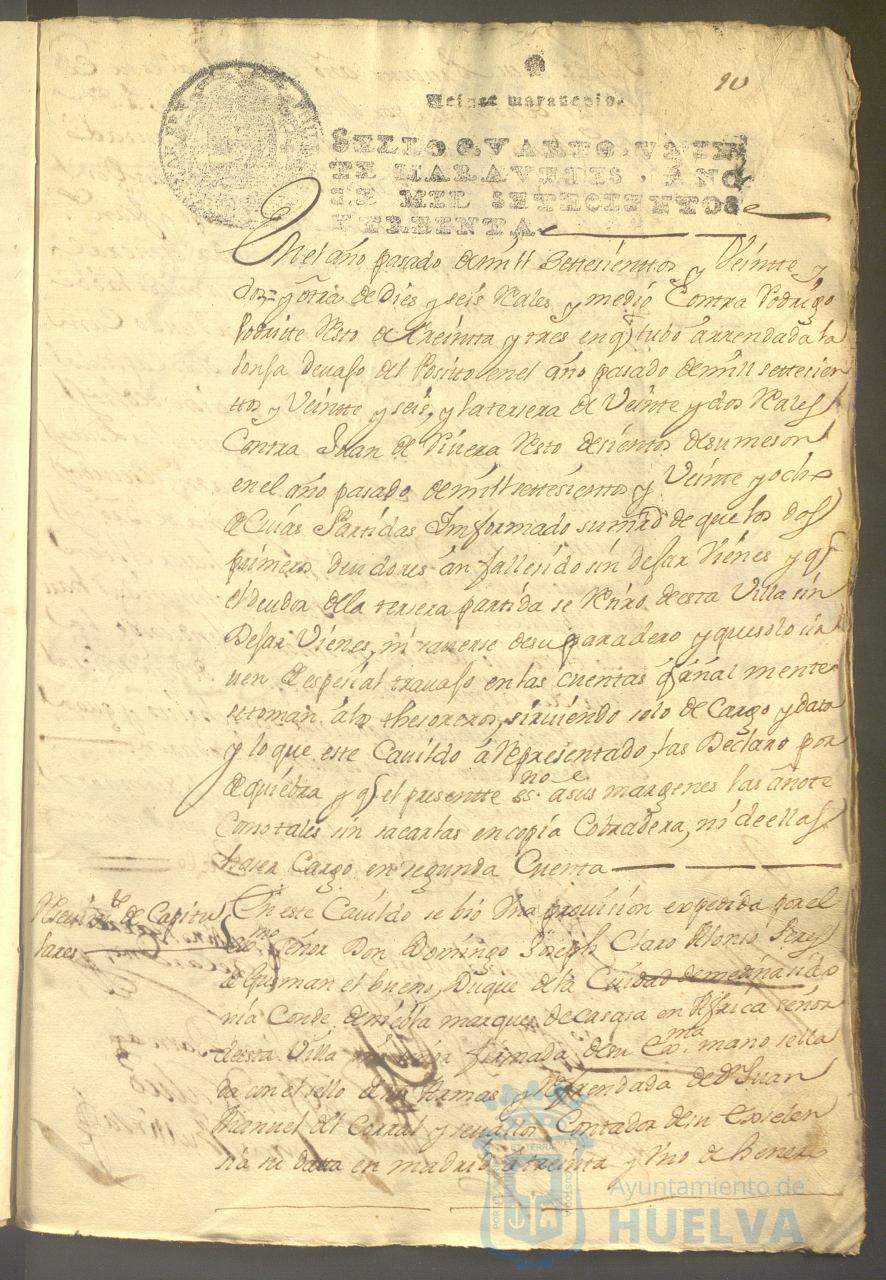 90
Veinte maravedis.
SELLO QVARTO, VEIN
TE MARAVEDIS, AÑO
DE MIL SETECIENTOS
Y TREINTA
En el año pasado de mill settesienttos y Veintte y
dos = y otra de Dies y seis Reales y medio Contra Rodrigo
Resto de treintta y tres en q tubo arrendada la
del Positto en el año pasado de mill settesien
ttos y Veintte y seis, y la tersera de Veinte y dos Reales
Contra Juan de Rivera Resto de sientos de su meson
en el año pasado de mill settesientos y Veinte y ocho
de Cuias Partidas Informado su mrd de que los dos
primeros deudores an fallesido sin desar Vienes y q
el deudor de la tersera partida se Retiro desta Villa sin
Desar Vienes, ni saverse de su paradero y que solo sir
uen de espesial travaso en las cuentas q añal mente
se toman á los thesoreros, sirviendo solo de Cargo y data
y lo que este Cavildo á Representado, las Declaro por
de quiebra y q el presentte ss.no de a sus margenes las añote
Como tales sin sacarlas en copia Cobradera, ni de ellas
haser Cargo en segunda Cuenta
Reseui.to de Capitu
lares
En este Cavildo se bio Una provision expedida por el
Exmo Señor Don Domingo Joseph Claro Alonso Peres
de Gusman el bueno, Duque de la Ciudad de medina sido
nia Conde de niebla marques de Casasa en Africa señor
desta Villa firmada de su Exma mano sella
da con el sello de sus Armas y Refrendada de Dn Juan
Manuel del Corral y Contador de su Exselen
sia su data en madrid á treinta y Uno de henero
Ayuntamiento de
HUELVA